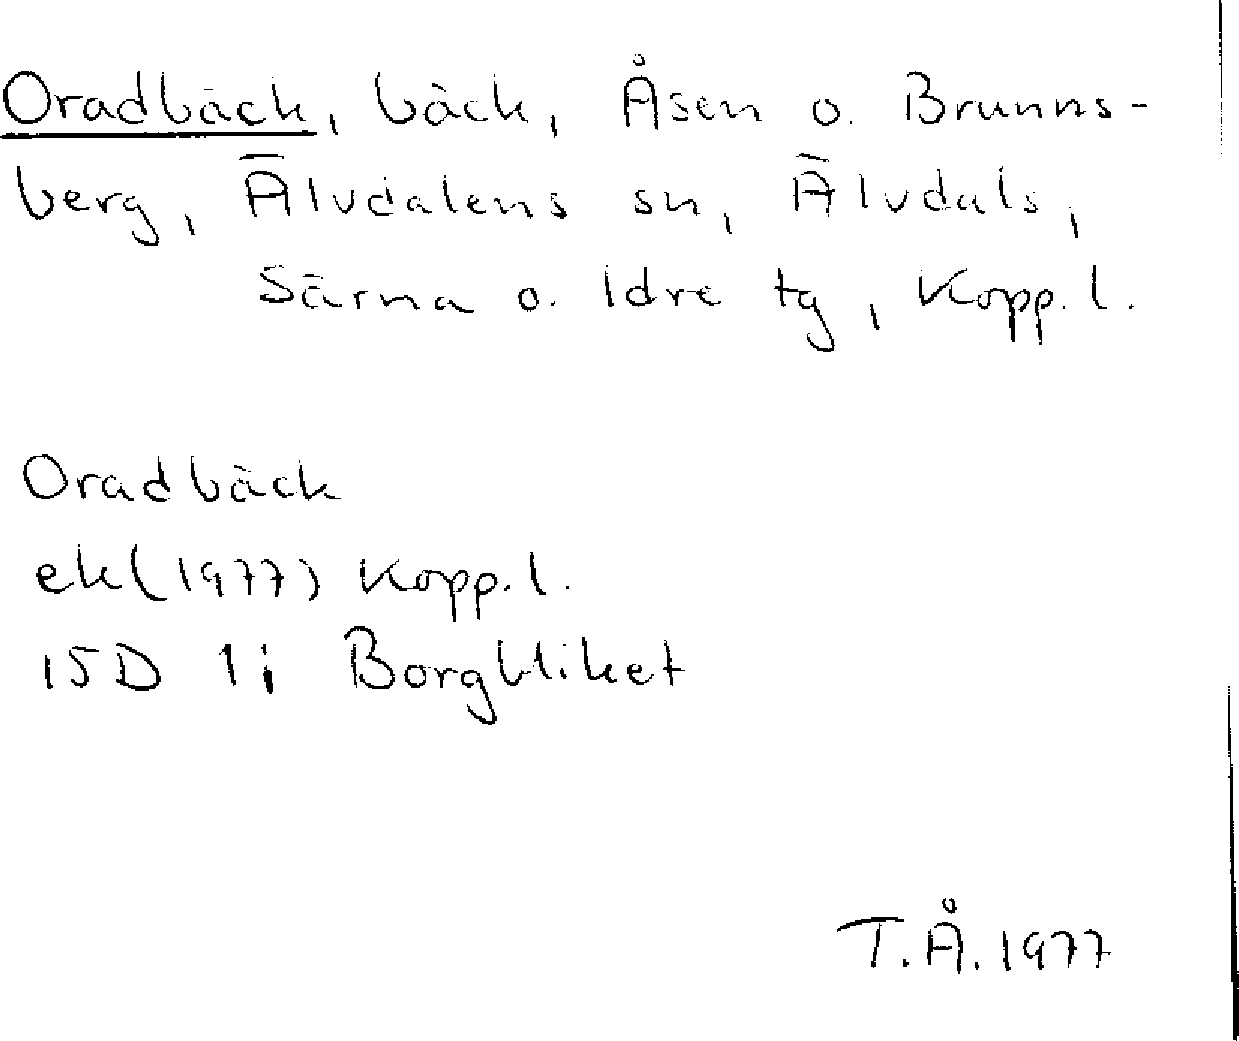 Oradbäck, bäck, Åsen o. Brunns-
berg, Älvdalens sn, Älvdals,
Särna o. Idre tg, Kopp. l.
Oradbäck
ek(1977) Kopp. l.
15D 1i Borgbliket
T.Å. 1977